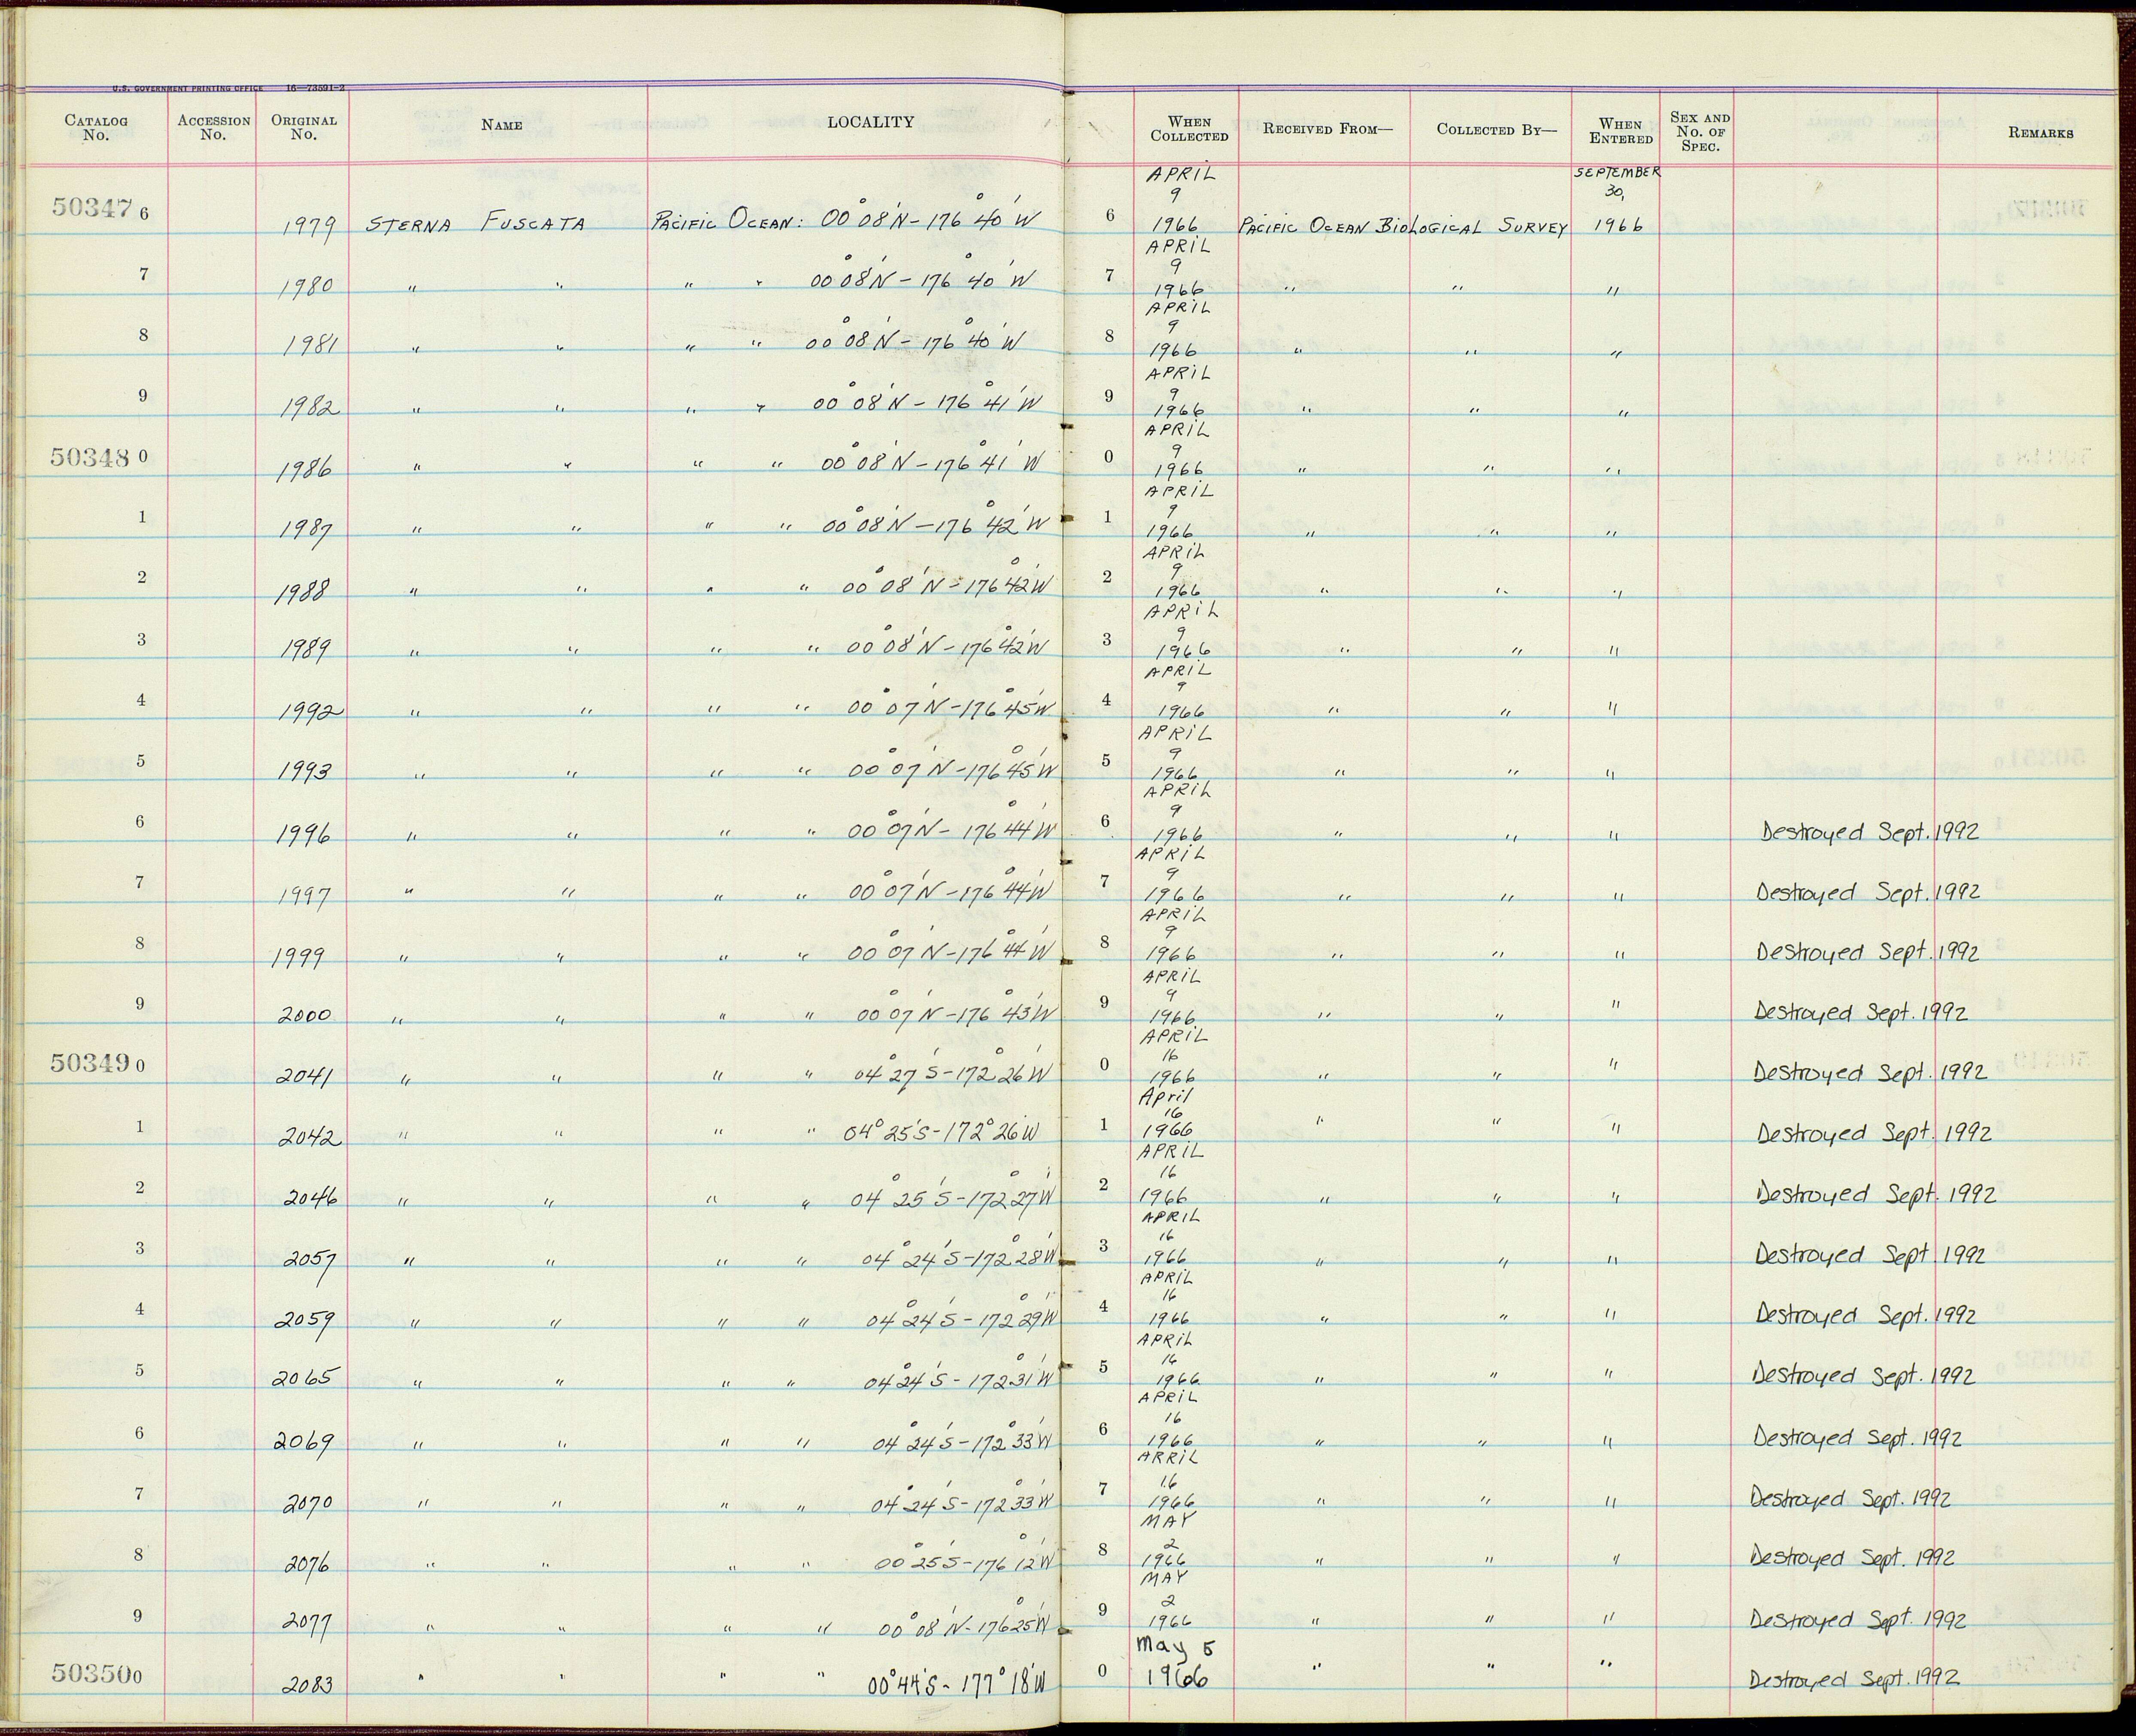 U.S. GOVERNMENT PRINTING OFFICE 16—73591-2
CATALOG No. ACCESSION No. ORIGINAL No. NAME LOCALITY WHEN COLLECTED RECEIVED FROM— COLLECTED BY— WHEN ENTERED SEX AND No. OF SPEC. REMARKS
503476 1979 STERNA FUSCATA PACIFIC OCEAN: 00° 08' N - 176° 40' W 6 APRIL 9 1966 PACIFIC OCEAN BIOLOGICAL SURVEY SEPTEMBER 30, 1966
7 1980 " " " " 00° 08' N - 176° 40' W 7 APRIL 9 1966 " " "
8 1981 " " " " 00° 08' N - 176° 40' W 8 APRIL 9 1966 " " "
9 1982 " " " " 00° 08' N - 176° 41' W 9 APRIL 9 1966 " " "
503480 1986 " " " " 00° 08' N - 176° 41' W 0 APRIL 9 1966 " " "
1 1987 " " " " 00° 08' N - 176° 42' W 1 APRIL 9 1966 " " "
2 1988 " " " " 00° 08' N - 176° 42' W 2 APRIL 9 1966 " " "
3 1989 " " " " 00° 08' N - 176° 42' W 3 APRIL 9 1966 " " "
4 1992 " " " " 00° 07' N - 176° 45' W 4 APRIL 9 1966 " " "
5 1993 " " " " 00° 07' N - 176° 45' W 5 APRIL 9 1966 " " "
6 1996 " " " " 00° 07' N - 176° 44' W 6 APRIL 9 1966 " " " Destroyed Sept. 1992
7 1997 " " " " 00° 07' N - 176° 44' W 7 APRIL 9 1966 " " " Destroyed Sept. 1992
8 1999 " " " " 00° 07' N - 176° 44' W 8 APRIL 9 1966 " " " Destroyed Sept. 1992
9 2000 " " " " 00° 07' N - 176° 43' W 9 APRIL 9 1966 " " " Destroyed Sept. 1992
503490 2041 " " " " 04° 27' S - 172° 26' W 0 APRIL 16 1966 " " " Destroyed Sept. 1992
1 2042 " " " " 04° 25' S - 172° 26' W 1 April 16 1966 " " " Destroyed Sept. 1992
2 2046 " " " " 04° 25' S - 172° 27' W 2 APRIL 16 1966 " " " Destroyed Sept. 1992
3 2057 " " " " 04° 24' S - 172° 28' W 3 APRIL 16 1966 " " " Destroyed Sept 1992
4 2059 " " " " 04° 24' S - 172° 29' W 4 APRIL 16 1966 " " " Destroyed Sept. 1992
5 2065 " " " " 04° 24' S - 172° 31' W 5 APRIL 16 1966 " " " Destroyed Sept. 1992
6 2069 " " " " 04° 24' S - 172° 33' W 6 APRIL 16 1966 " " " Destroyed Sept. 1992
7 2070 " " " " 04° 24' S - 172° 33' W 7 ARRIL 16 1966 " " " Destroyed Sept. 1992
8 2076 " " " " 00° 25' S - 176° 12' W 8 MAY 2 1966 " " " Destroyed Sept. 1992
9 2077 " " " " 00° 08' N - 176° 25' W 9 MAY 2 1966 " " " Destroyed Sept. 1992
503500 2083 " " " " 00° 44' S - 177° 18' W 0 May 5 1966 " " " Destroyed Sept. 1992